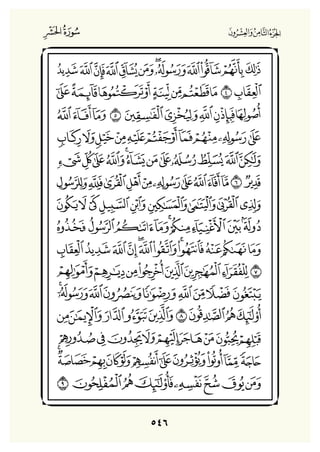 الجُزْءُ الثَّامِنُ وَالعِشْرُونَ
سُورَةُ الحَشْرِ
ذَٰلِكَ بِأَنَّهُمْ شَآقُّوا۟ ٱللَّهَ وَرَسُولَهُۥ ۖ وَمَن يُشَآقِّ ٱللَّهَ فَإِنَّ ٱللَّهَ شَدِيدُ
ٱلْعِقَابِ ٤ مَا قَطَعْتُم مِّن لِّينَةٍ أَوْ تَرَكْتُمُوهَا قَآئِمَةً عَلَىٰٓ
أُصُولِهَا فَبِإِذْنِ ٱللَّهِ وَلِيُخْزِىَ ٱلْفَٰسِقِينَ ٥ وَمَآ أَفَآءَ ٱللَّهُ
عَلَىٰ رَسُولِهِۦ مِنْهُمْ فَمَآ أَوْجَفْتُمْ عَلَيْهِ مِنْ خَيْلٍ وَلَا رِكَابٍ
وَلَٰكِنَّ ٱللَّهَ يُسَلِّطُ رُسُلَهُۥ عَلَىٰ مَن يَشَآءُ ۚ وَٱللَّهُ عَلَىٰ كُلِّ شَىْءٍ
قَدِيرٌ ٦ مَّآ أَفَآءَ ٱللَّهُ عَلَىٰ رَسُولِهِۦ مِنْ أَهْلِ ٱلْقُرَىٰ فَلِلَّهِ وَلِلرَّسُولِ
وَلِذِى ٱلْقُرْبَىٰ وَٱلْيَتَٰمَىٰ وَٱلْمَسَٰكِينِ وَٱبْنِ ٱلسَّبِيلِ كَىْ لَا يَكُونَ
دُولَةًۢ بَيْنَ ٱلْأَغْنِيَآءِ مِنكُمْ ۚ وَمَآ ءَاتَىٰكُمُ ٱلرَّسُولُ فَخُذُوهُ
وَمَا نَهَىٰكُمْ عَنْهُ فَٱنتَهُوا۟ ۚ وَٱتَّقُوا۟ ٱللَّهَ ۖ إِنَّ ٱللَّهَ شَدِيدُ ٱلْعِقَابِ
٧ لِلْفُقَرَآءِ ٱلْمُهَٰجِرِينَ ٱلَّذِينَ أُخْرِجُوا۟ مِن دِيَٰرِهِمْ وَأَمْوَٰلِهِمْ
يَبْتَغُونَ فَضْلًا مِّنَ ٱللَّهِ وَرِضْوَٰنًا وَيَنصُرُونَ ٱللَّهَ وَرَسُولَهُۥٓ ۚ
أُو۟لَٰٓئِكَ هُمُ ٱلصَّٰدِقُونَ ٨ وَٱلَّذِينَ تَبَوَّءُو ٱلدَّارَ وَٱلْإِيمَٰنَ مِن
قَبْلِهِمْ يُحِبُّونَ مَنْ هَاجَرَ إِلَيْهِمْ وَلَا يَجِدُونَ فِى صُدُورِهِمْ
حَاجَةً مِّمَّآ أُوتُوا۟ وَيُؤْثِرُونَ عَلَىٰٓ أَنفُسِهِمْ وَلَوْ كَانَ بِهِمْ خَصَاصَةٌ ۚ
وَمَن يُوقَ شُحَّ نَفْسِهِۦ فَأُو۟لَٰٓئِكَ هُمُ ٱلْمُفْلِحُونَ ٩
٥٤٦